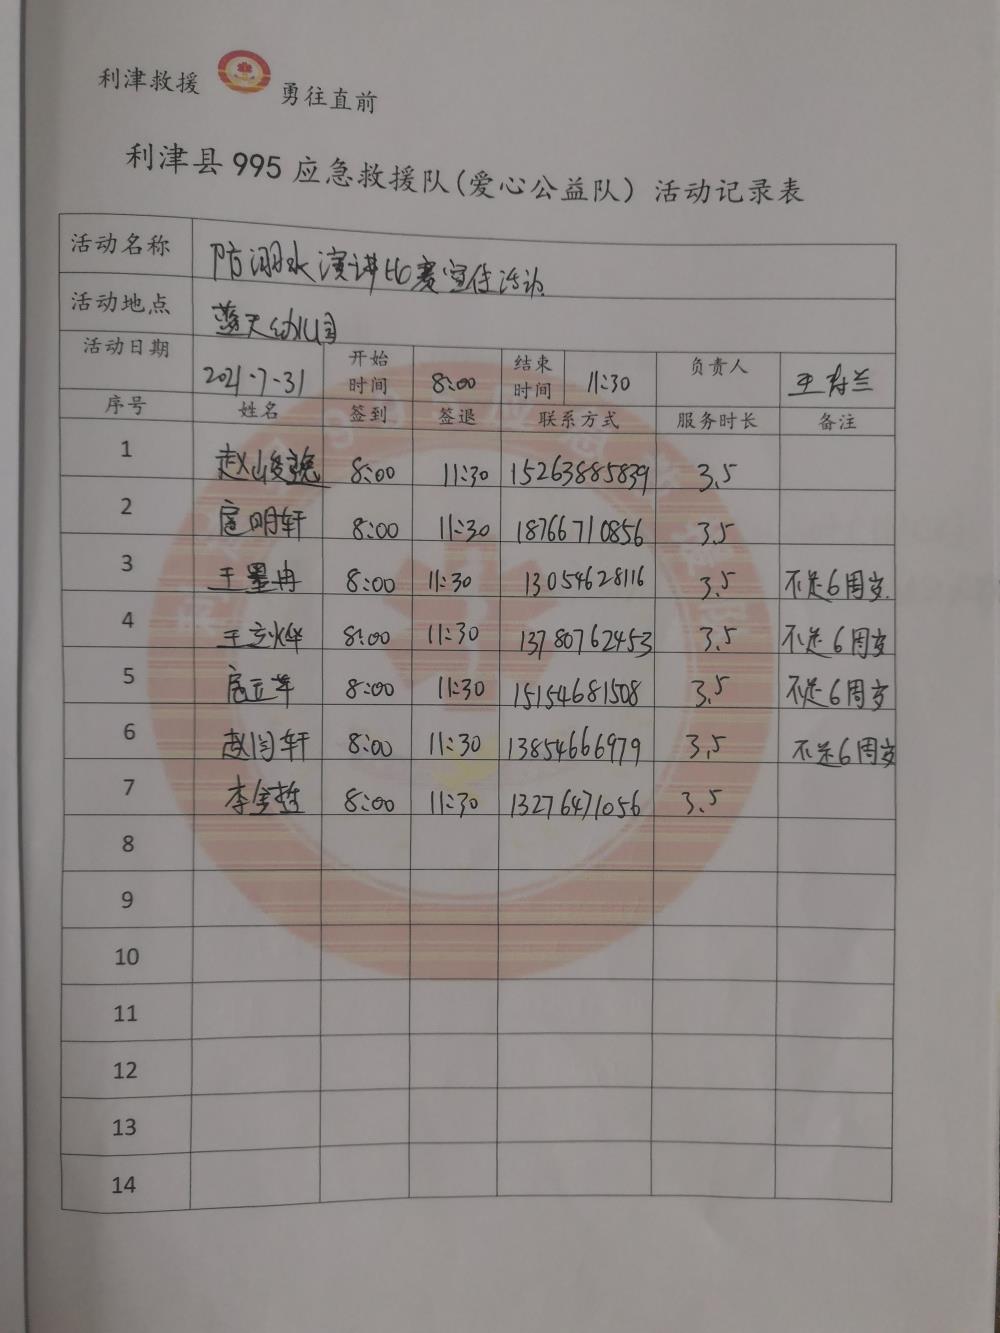 利津救援 勇往直前
利津县 995 应急救援队(爱心公益队) 活动记录表
活动名称 防溺水演讲比赛宣传活动
活动地点 蓝天幼儿园
活动日期 2021.7.31 开始时间 8:00 结束时间 11:30 负责人 王春兰
序号 姓名 签到 签退 联系方式 服务时长 备注
1 赵峻逸 8:00 11:30 15263885839 3.5
2 扈明轩 8:00 11:30 18766710856 3.5
3 王墨冉 8:00 11:30 13054628116 3.5 不足6周岁.
4 王立烨 8:00 11:30 13780762453 3.5 不足6周岁
5 8:00 11:30 15154681508 3.5 不足6周岁
6 赵闫轩 8:00 11:30 13854666979 3.5 不足6周岁
7 8:00 11:30 13276471056 3.5
8
9
10
11
12
13
14